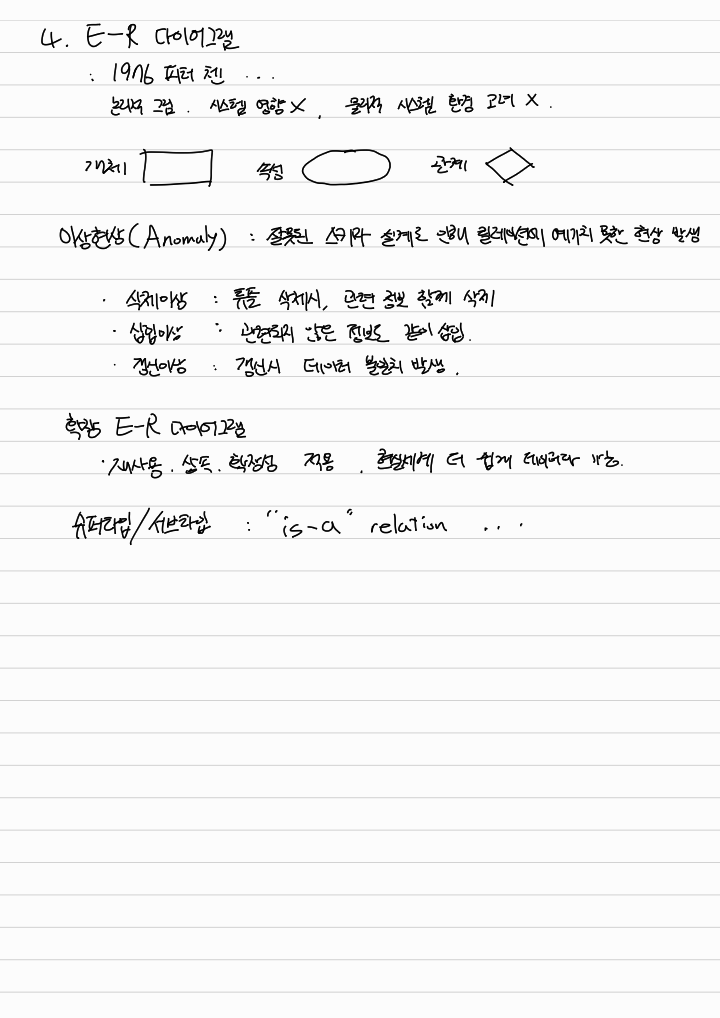 4. E-R 다이어그램
: 1976 피터 첸 ...
논리적 그림. 시스템 영향 X, 물리적 시스템 환경 고려 X.
개체 속성 관계
이상현상(Anomuly) : 잘못된 스키마 설계로 인해 릴레이션에 예기치 못한 현상 발생
· 삭제이상 : 튜플 삭제시, 관련 정보 함께 삭제
· 삽입이상 : 관련되지 않은 정보도 같이 삽입.
· 갱신이상 : 갱신시 데이터 불일치 발생.
확장 E-R 다이어그램
· 재사용. 상속. 확장성 적용. 현실세계 더 쉽게 가능.
슈퍼타입/서브타입 : "is-a" relation ...